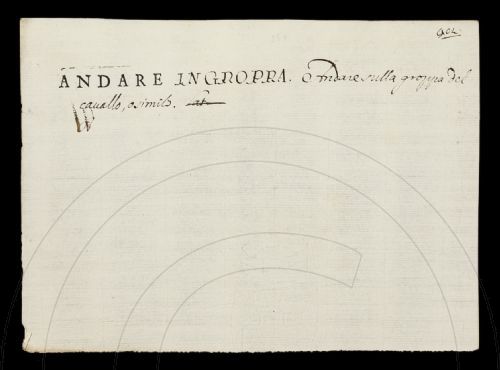 902.
ANDARE IN GROPPA. Andare sulla groppa del
cavallo, o simile.